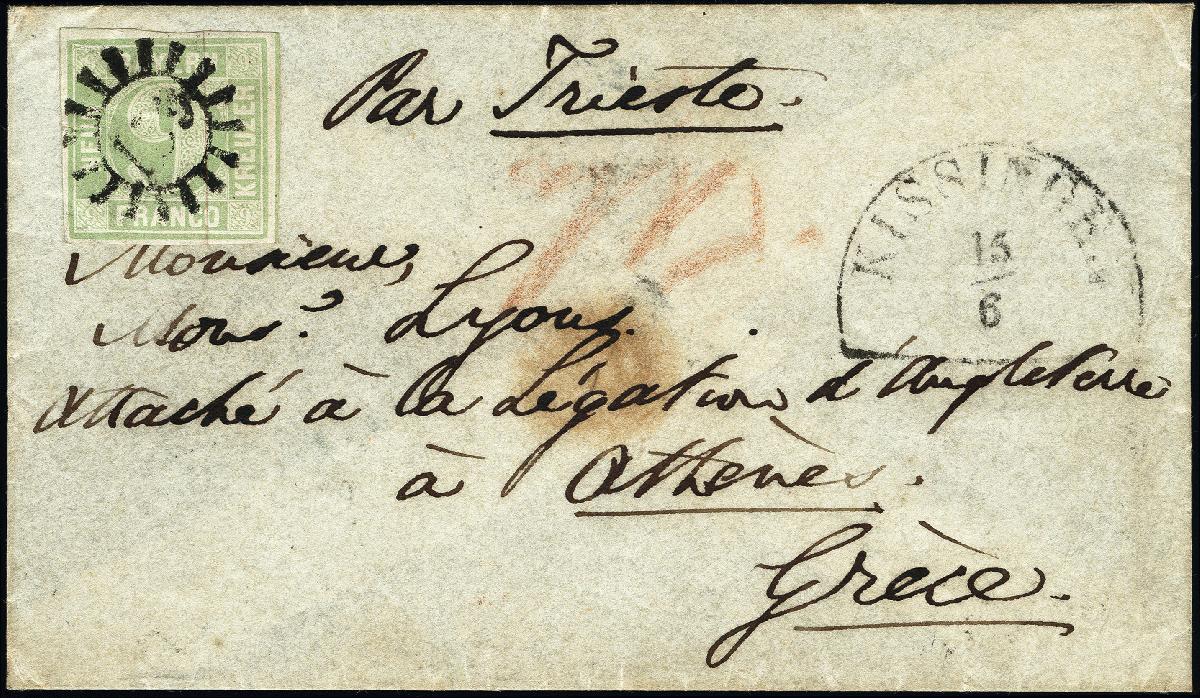 BAYERN
NEUN
KREUZER
FRANCO
Par Trieste.
KISSINGEN
15
6
Monsieur,
Monsr. Lyons.
attaché à la Légation d'Angleterre
à Athènes.
Grèce.